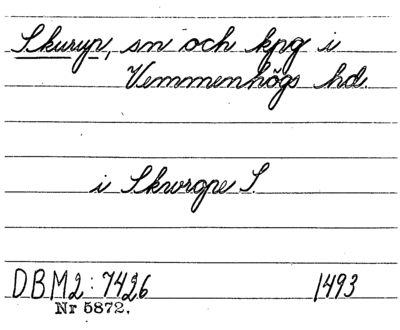 Skurup, sn och kpg i
Vemmenhögs hd.
i Skworgpe S.
DBM2:7426 1493
Nr 5872.